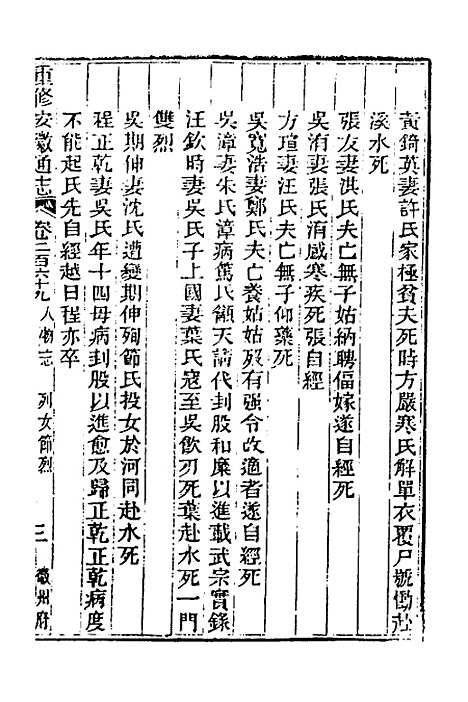 黃錡英妻許氏家極貧夫死時方嚴寒氏解單衣覆尸號慟赴
溪水死
張友妻洪氏夫亡無子姑納聘偪嫁遂自經死
吳湏妻張氏湏感寒疾死張自經
方瑄妻汪氏夫亡無子仰藥死
吳寬浩妻鄭氏夫亡養姑姑歿有強令改適者遂自經死
吳漳妻朱氏漳病篤氏籲天請代刲股和糜以進載武宗實錄
汪欽時妻吳氏子上國妻葉氏寇至吳飲刃死葉赴水死一門
雙烈
吳期伸妻沈氏遭變期伸殉節氏投女於河同赴水死
程正乾妻吳氏年十四母病刲股以進愈及歸正乾正乾病度
不能起氏先自經越日程亦卒
重修安徽通志 卷二百六十九 人物志 列女節烈 三 徽州府